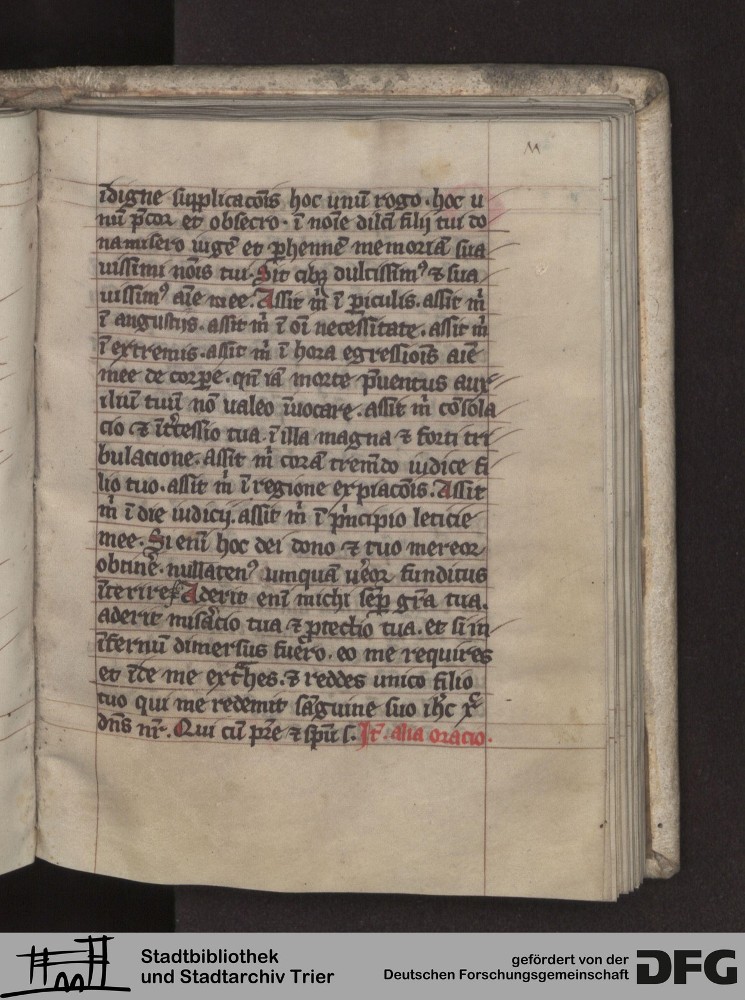 M
īdigne supplicacōis hoc unū rogo. hoc u
nū p̄cor et obsecro. ī noīe dilcī filij tui do
na misero iugē et phennē memoriā sua
uissimi nōis tui. Sit cibꝫ dulcissimꝰ ⁊ sua
uissimꝰ aīe mee. Assit m̄ ī piculis. assit m̄
ī angustijs. assit m̄ ī oī necessitate. assit m̄
ī extremis. assit m̄ ī hora egressiōis aīe
mee de corpe. qn̄ iā morte p̄uentus aux
iliū tuū nō ualeo īuocare. assit m̄ cōsola
cio ⁊ īt͛cessio tua. ī illa magna ⁊ forti tri
bulacione. assit m̄ corā tremēdo iudice fi
lio tuo. assit m̄ ī regione expiacōis. Assit
m̄ ī die iudicij. assit m̄ ī pͥncipio leticie
mee. Si enī hoc dei dono ⁊ tuo mereor
obtinē. nullatenꝰ umquā ueor funditus
īterire Aderit enī michi semp gr̄a tua.
aderit misācio tua ⁊ ptectio tua. et si in
īfernū dimersus fuero. eo me requires
et īde me extͣhes. ⁊ reddes unico filio
tuo qui me redemit sāguine suo ih̄c xᷓ
dn̄s nr̄. Qui cū pr̄e ⁊ spū s. It̄. alia oracio.
Stadtbibliothek
und Stadtarchiv Trier
gefördert von der
Deutschen Forschungsgemeinschaft
DFG